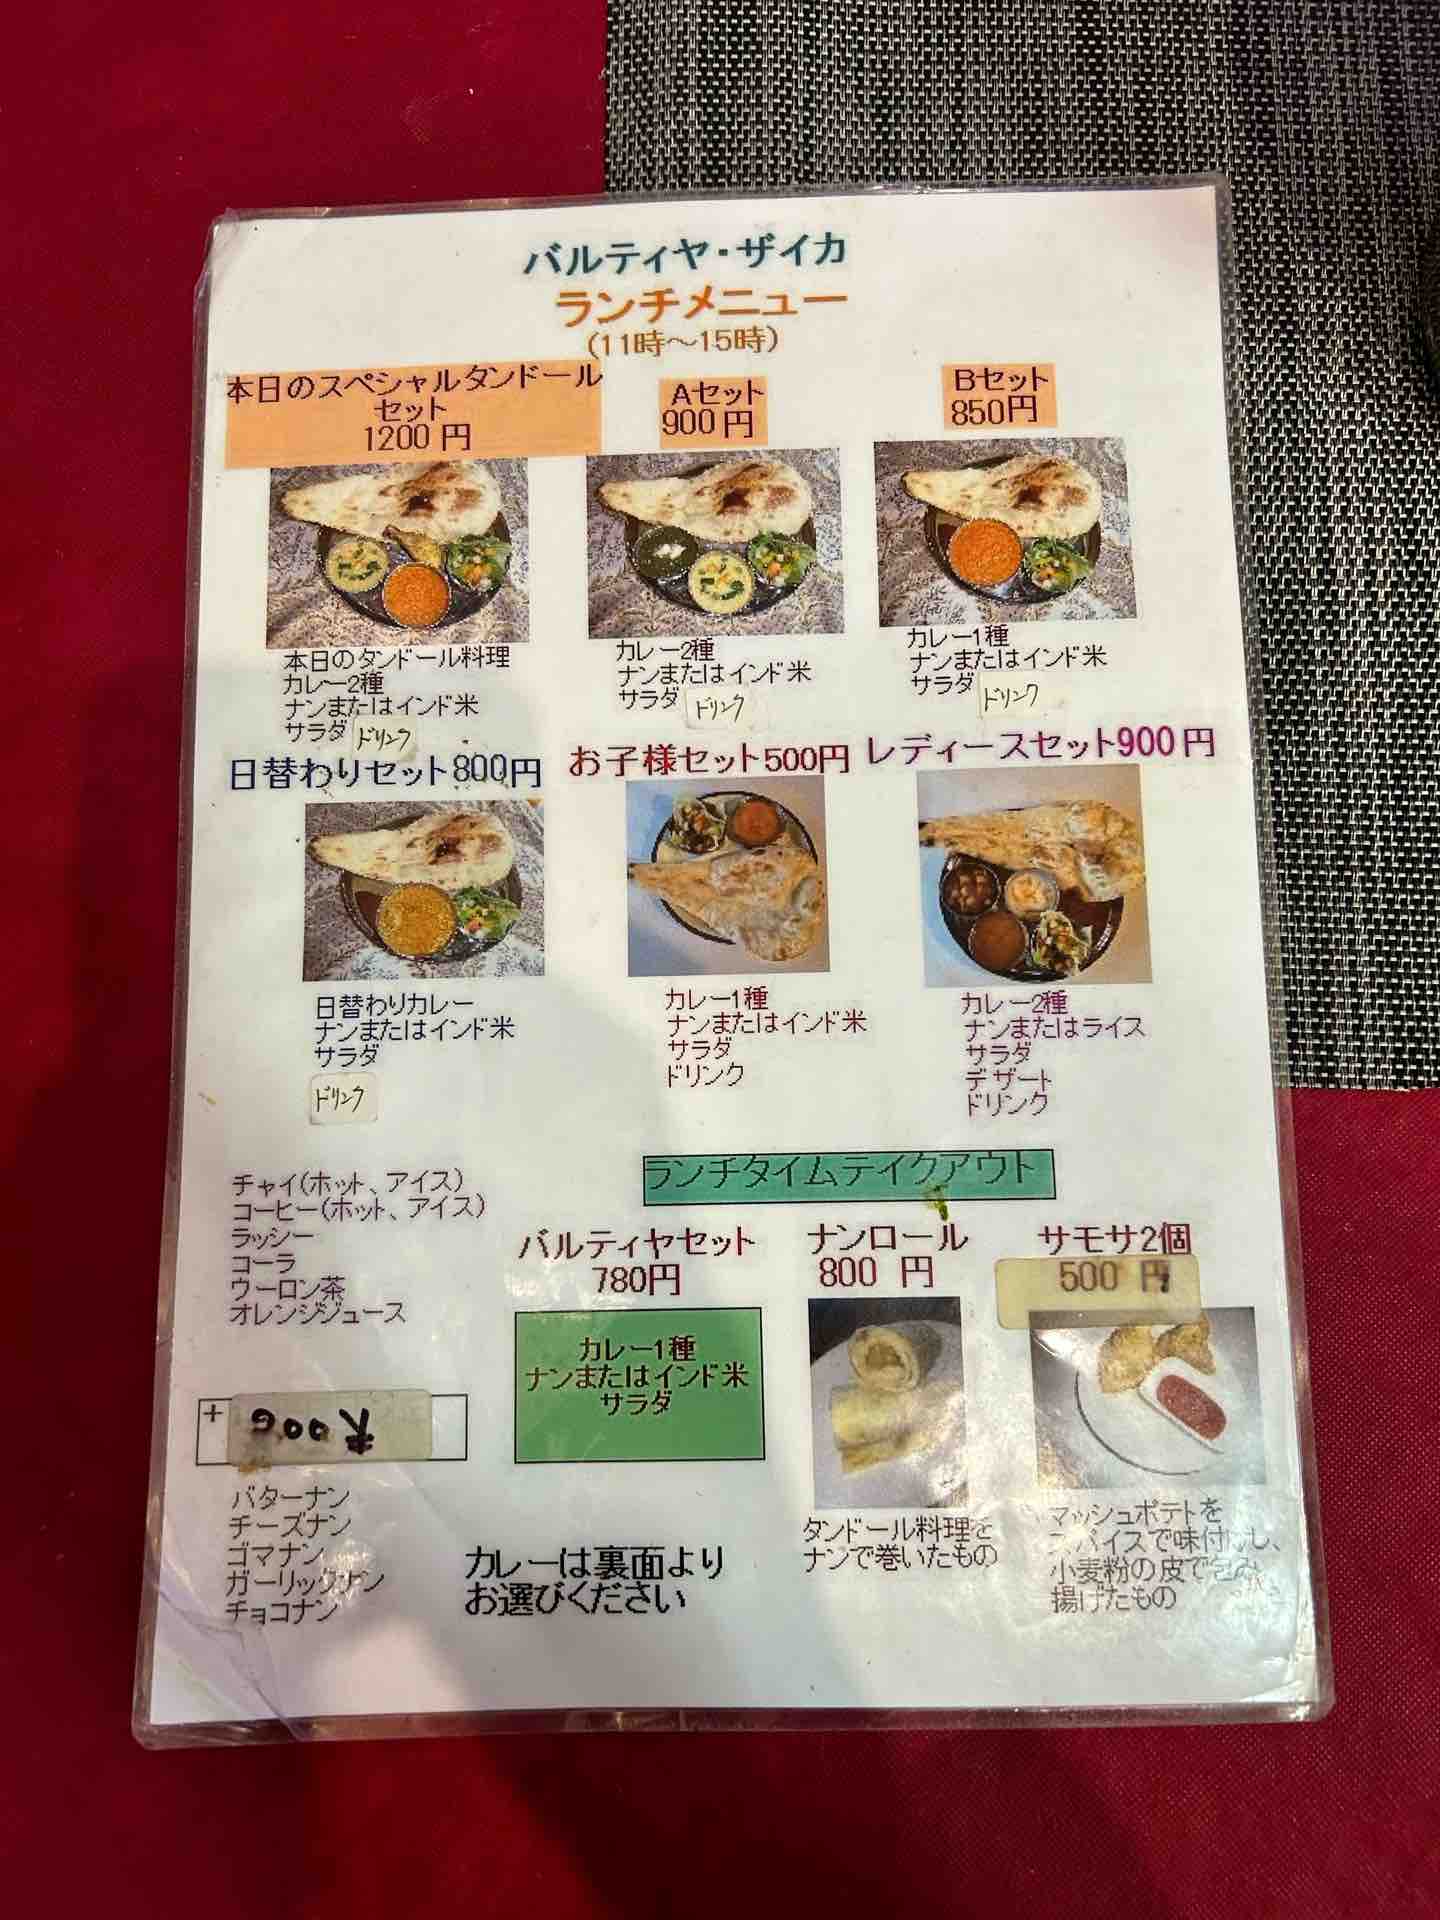 バルティヤ・ザイカ
ランチメニュー
(11時～15時)
本日のスペシャルタンドール
セット
1200 円
Aセット
900 円
Bセット
850円
本日のタンドール料理
カレー2種
ナンまたはインド米
サラダ ドリンク
カレー2種
ナンまたはインド米
サラダ ドリンク
カレー1種
ナンまたはインド米
サラダ ドリンク
日替わりセット800円
お子様セット500円
レディースセット900 円
日替わりカレー
ナンまたはインド米
サラダ
ドリンク
カレー1種
ナンまたはインド米
サラダ
ドリンク
カレー2種
ナンまたはライス
サラダ
デザート
ドリンク
チャイ(ホット、アイス)
コーヒー(ホット、アイス)
ラッシー
コーラ
ウーロン茶
オレンジジュース
+
バターナン
チーズナン
ゴマナン
ガーリックナン
チョコナン
ランチタイムテイクアウト
バルティヤセット
780円
カレー1種
ナンまたはインド米
サラダ
ナンロール
800 円
タンドール料理を
ナンで巻いたもの
サモサ2個
500 円
マッシュポテトを
スパイスで味付けし、
小麦粉の皮で包み、
揚げたもの
カレーは裏面より
お選びください